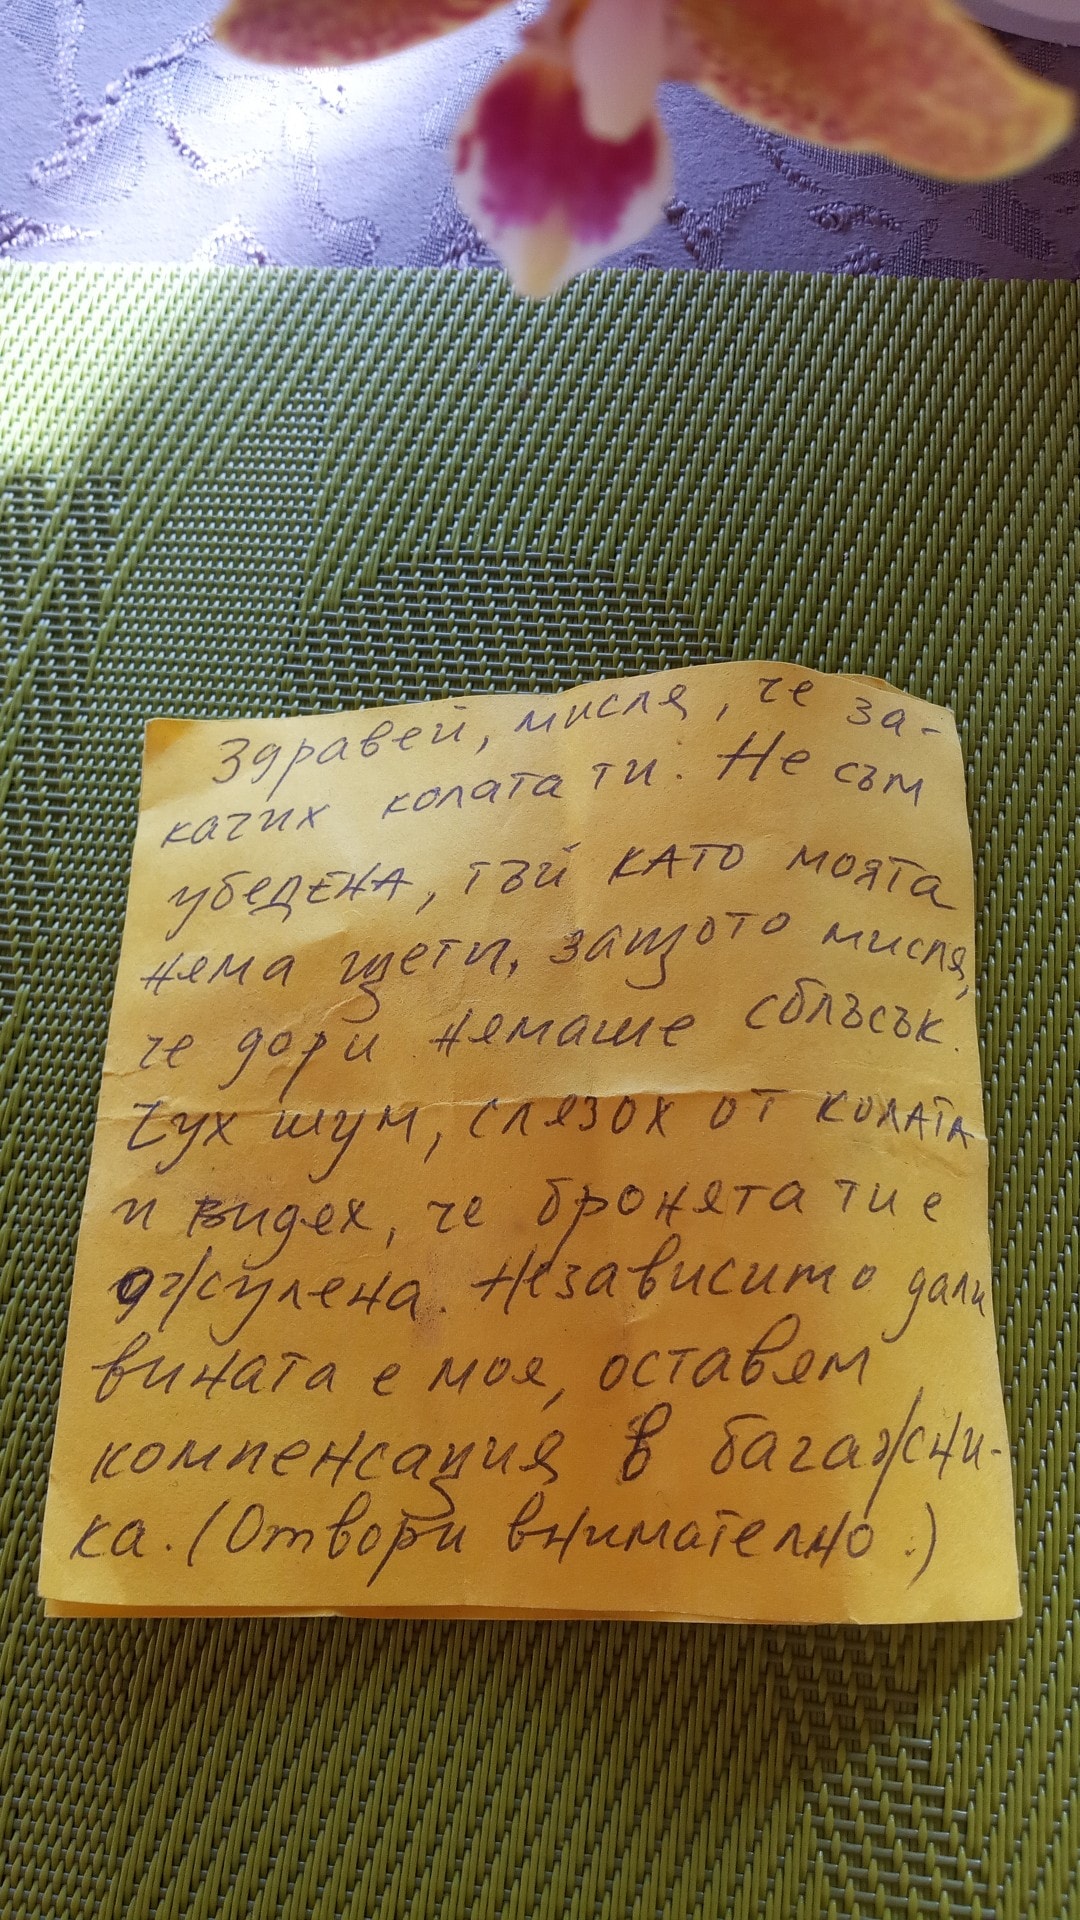 Здравей, мисля, че за-
качих колата ти. Не съм
убедена, тъй като моята
няма щети, защото мисля,
че дори нямаше сблъсък.
Чух шум, слязох от колата
и видях, че бронята ти е
ожулена. Независимо дали
вината е моя, оставям
компенсация в багажни-
ка. (Отвори внимателно.)